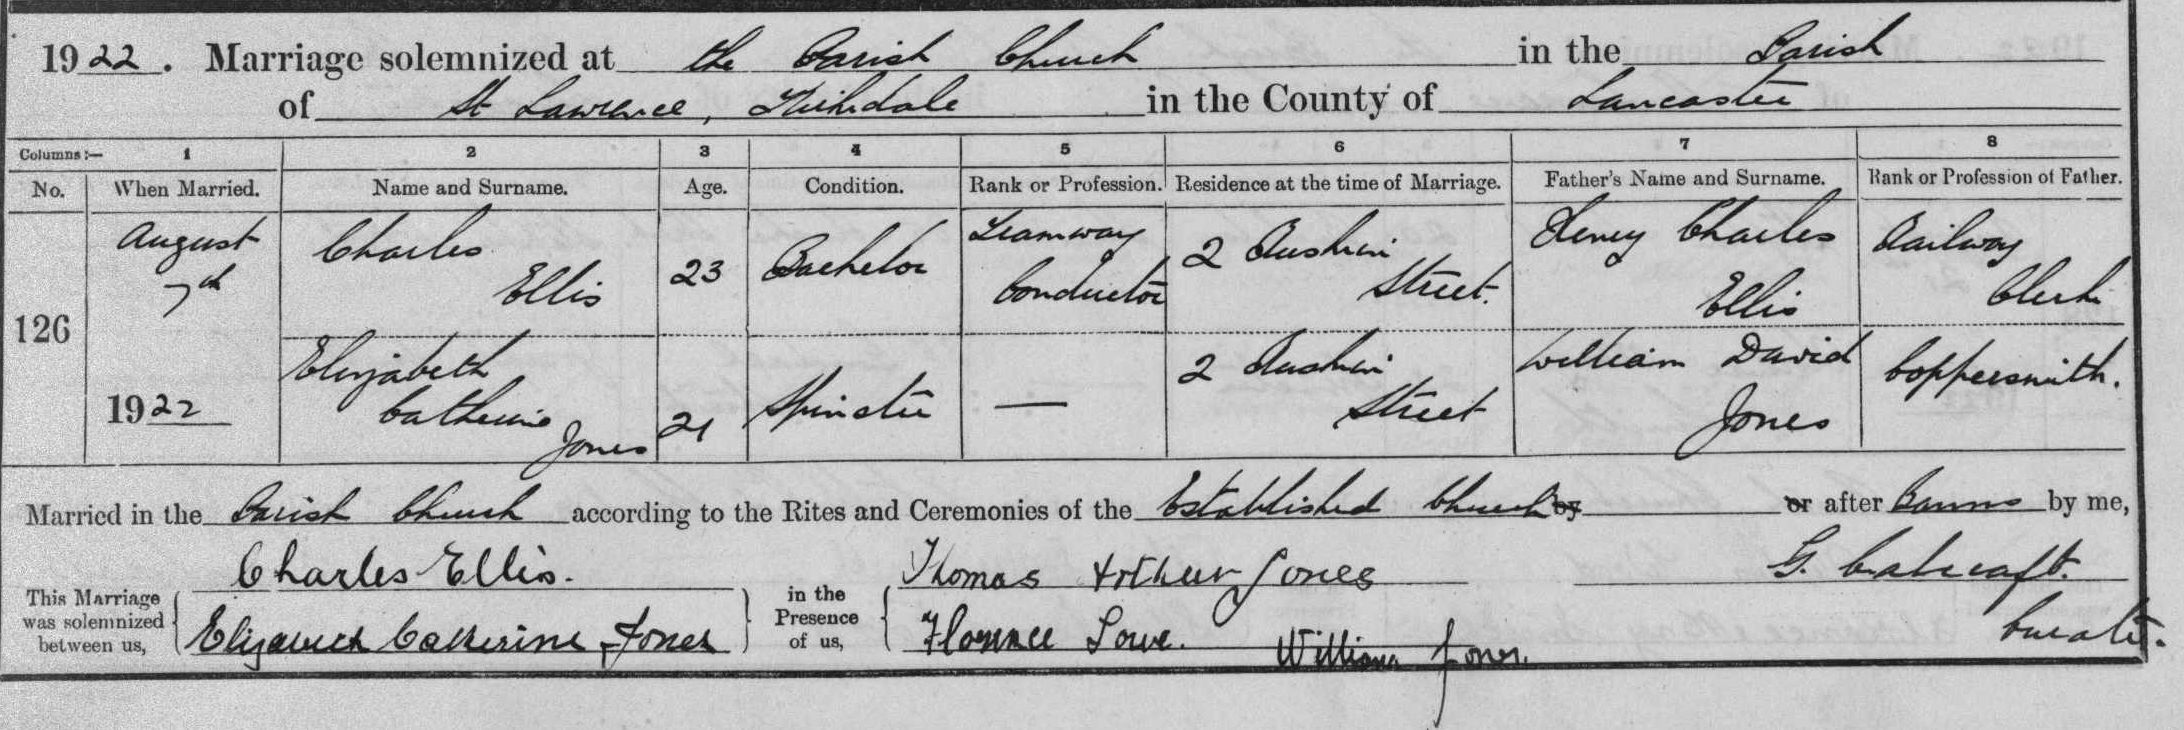 1922. Marriage solemnized at the Parish Church in the Parish
of St Lawrence, Kirkdale in the County of Lancaster
Columns:— 1 2 3 4 5 6 7 8
No. When Married. Name and Surname. Age. Condition. Rank or Profession. Residence at the time of Marriage. Father's Name and Surname. Rank or Profession of Father.
126
August
7th
1922
Charles
Ellis
23
Bachelor
Tramway
Conductor
2
Street.
Henry Charles
Ellis
Railway
Clerk
Elizabeth
Catherine
Jones
21
Spinster
—
2
Street
William David
Jones
Coppersmith.
Married in the Parish Church according to the Rites and Ceremonies of the Established Church by or after Banns by me,
This Marriage
was solemnized
between us,
Charles Ellis.
Elizabeth Catherine Jones
in the
Presence
of us,
Thomas Arthur Jones
Florence Lowe.
William Jones.
G.
Curate.